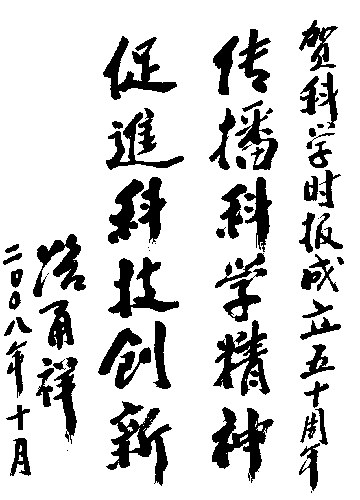 贺科学时报成立五十周年
传播科学精神
促進科技创新
路甬祥
二〇〇八年十月